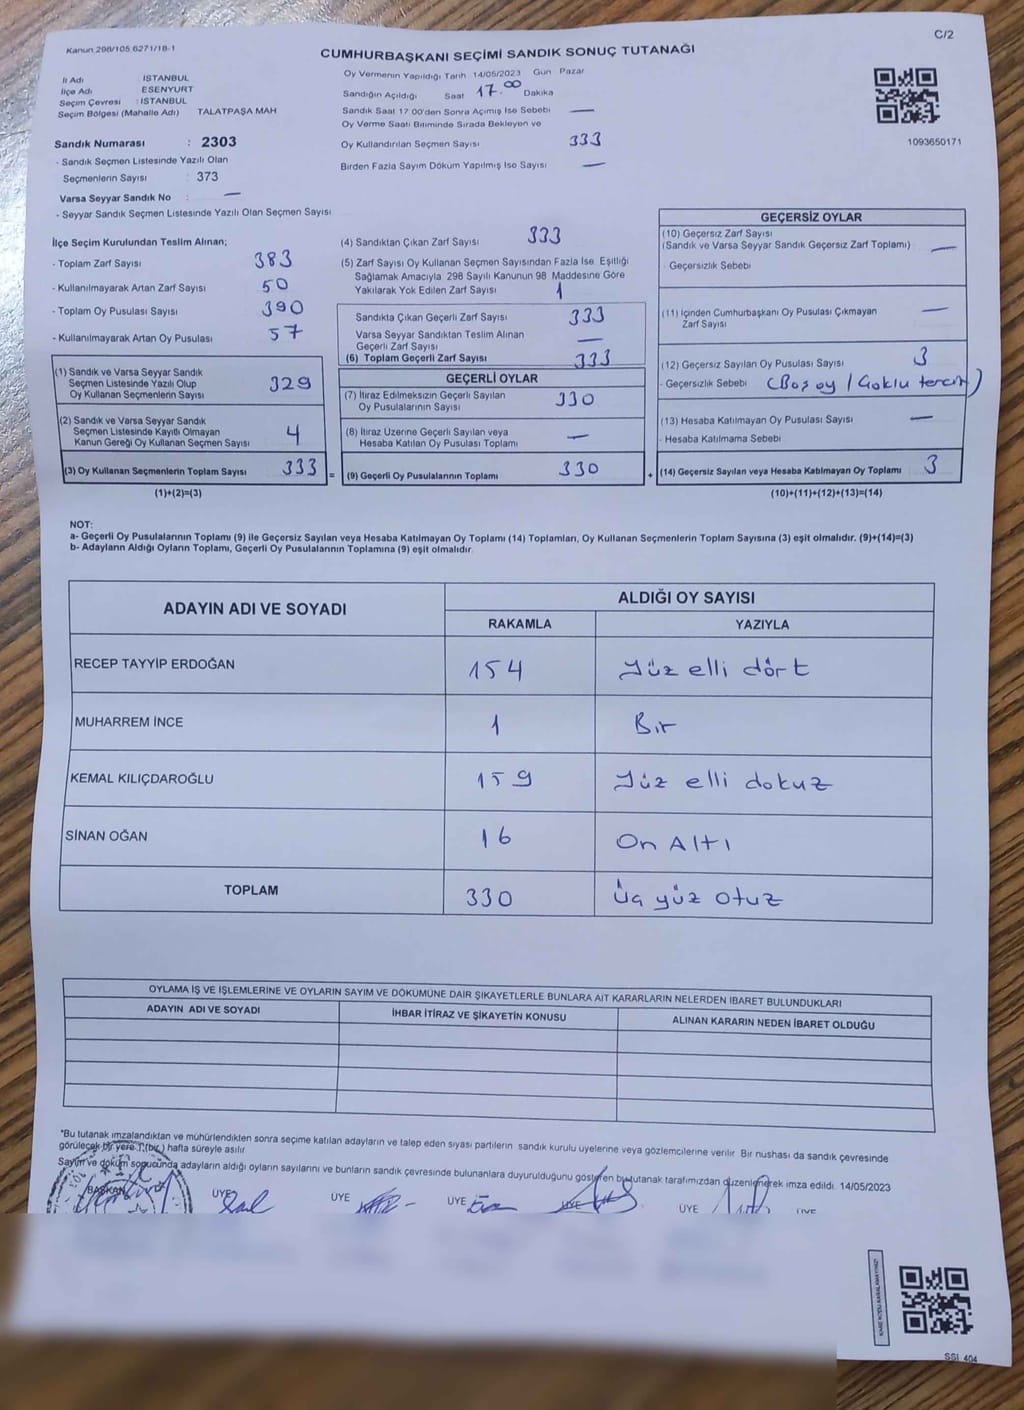 Kanun 298/105 6271/18-1
C/2
CUMHURBAŞKANI SEÇİMİ SANDIK SONUÇ TUTANAĞI
İl Adı İSTANBUL
İlçe Adı ESENYURT
Seçim Çevresi : İSTANBUL
Seçim Bölgesi (Mahalle Adı) TALATPAŞA MAH
Sandık Numarası : 2303
- Sandık Seçmen Listesinde Yazılı Olan
Seçmenlerin Sayısı : 373
Varsa Seyyar Sandık No : —
- Seyyar Sandık Seçmen Listesinde Yazılı Olan Seçmen Sayısı
Oy Vermenin Yapıldığı Tarih 14/05/2023 Gün Pazar
Sandığın Açıldığı Saat 17.00 Dakika
Sandık Saat 17 00'den Sonra Açımış İse Sebebi —
Oy Verme Saati Bitiminde Sırada Bekleyen ve
Oy Kullandırılan Seçmen Sayısı 333
Birden Fazla Sayım Döküm Yapılmış İse Sayısı —
1093650171
İlçe Seçim Kurulundan Teslim Alınan;
- Toplam Zarf Sayısı 383
- Kullanılmayarak Artan Zarf Sayısı 50
- Toplam Oy Pusulası Sayısı 390
- Kullanılmayarak Artan Oy Pusulası 57
(1) Sandık ve Varsa Seyyar Sandık
Seçmen Listesinde Yazılı Olup
Oy Kullanan Seçmenlerin Sayısı 329
(2) Sandık ve Varsa Seyyar Sandık
Seçmen Listesinde Kayıtlı Olmayan
Kanun Gereği Oy Kullanan Seçmen Sayısı 4
(3) Oy Kullanan Seçmenlerin Toplam Sayısı 333 =
(1)+(2)=(3)
(4) Sandıktan Çıkan Zarf Sayısı 333
(5) Zarf Sayısı Oy Kullanan Seçmen Sayısından Fazla İse Eşitliği
Sağlamak Amacıyla 298 Sayılı Kanunun 98 Maddesine Göre
Yakılarak Yok Edilen Zarf Sayısı 1
Sandıkta Çıkan Geçerli Zarf Sayısı 333
Varsa Seyyar Sandıktan Teslim Alınan
Geçerli Zarf Sayısı —
(6) Toplam Geçerli Zarf Sayısı 333
GEÇERLİ OYLAR
(7) İtiraz Edilmeksizin Geçerli Sayılan
Oy Pusulalarının Sayısı 330
(8) İtiraz Üzerine Geçerli Sayılan veya
Hesaba Katılan Oy Pusulası Toplamı —
(9) Geçerli Oy Pusulalarının Toplamı 330 +
GEÇERSİZ OYLAR
(10) Geçersiz Zarf Sayısı
(Sandık ve Varsa Seyyar Sandık Geçersiz Zarf Toplamı) —
- Geçersizlik Sebebi
(11) İçinden Cumhurbaşkanı Oy Pusulası Çıkmayan
Zarf Sayısı —
(12) Geçersiz Sayılan Oy Pusulası Sayısı 3
- Geçersizlik Sebebi (Boş oy / Çoklu tercih)
(13) Hesaba Katılmayan Oy Pusulası Sayısı —
- Hesaba Katılmama Sebebi
(14) Geçersiz Sayılan veya Hesaba Katılmayan Oy Toplamı 3
(10)+(11)+(12)+(13)=(14)
NOT:
a- Geçerli Oy Pusulalarının Toplamı (9) ile Geçersiz Sayılan veya Hesaba Katılmayan Oy Toplamı (14) Toplamları, Oy Kullanan Seçmenlerin Toplam Sayısına (3) eşit olmalıdır. (9)+(14)=(3)
b- Adayların Aldığı Oyların Toplamı, Geçerli Oy Pusulalarının Toplamına (9) eşit olmalıdır.
ADAYIN ADI VE SOYADI ALDIĞI OY SAYISI
RAKAMLA YAZIYLA
RECEP TAYYİP ERDOĞAN 154 Yüz elli dört
MUHARREM İNCE 1 Bir
KEMAL KILIÇDAROĞLU 159 Yüz elli dokuz
SİNAN OĞAN 16 On Altı
TOPLAM 330 Üç yüz otuz
OYLAMA İŞ VE İŞLEMLERİNE VE OYLARIN SAYIM VE DÖKÜMÜNE DAİR ŞİKAYETLERLE BUNLARA AİT KARARLARIN NELERDEN İBARET BULUNDUKLARI
ADAYIN ADI VE SOYADI İHBAR İTİRAZ VE ŞİKAYETİN KONUSU ALINAN KARARIN NEDEN İBARET OLDUĞU
*Bu tutanak imzalandıktan ve mühürlendikten sonra seçime katılan adayların ve talep eden siyasi partilerin sandık kurulu üyelerine veya gözlemcilerine verilir Bir nushası da sandık çevresinde
görülecek bir yere 1 (bir) hafta süreyle asılır
Sayım ve döküm sonucunda adayların aldığı oyların sayılarını ve bunların sandık çevresinde bulunanlara duyurulduğunu gösteren bu tutanak tarafımızdan düzenlenerek imza edildi. 14/05/2023
BAŞKAN ÜYE ÜYE ÜYE ÜYE ÜYE ÜYE
KARE KODU KARALAMAYINIZ!
SSI 404